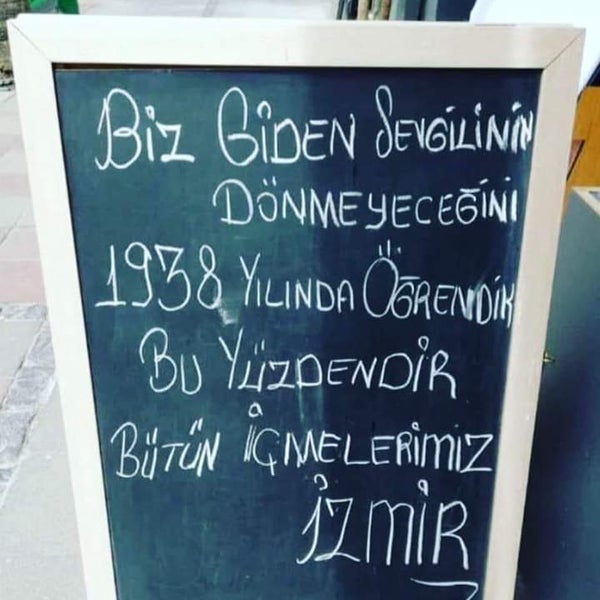 BİZ GİDEN SEVGİLİNİN
DÖNMEYECEĞİNİ
1938 YILINDA ÖĞRENDİK
BU YÜZDENDİR
BÜTÜN İÇMELERİMİZ
İZMİR